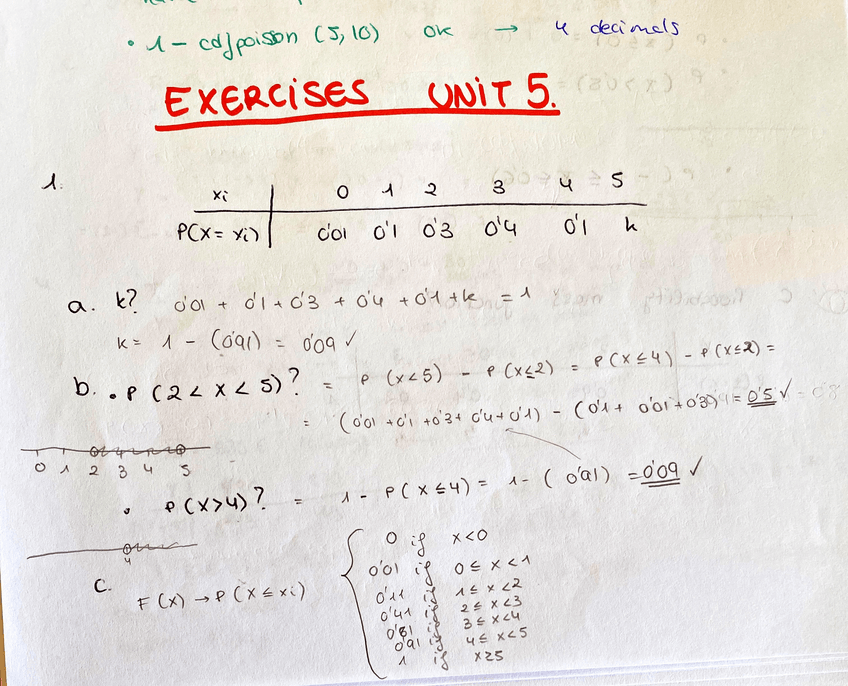 • 1 - cdf poisson (5, 10) ok → 4 decimals
EXERCISES UNIT 5.
1.
xi 0 1 2 3 4 5
P(X = xi) 0'01 0'1 0'3 0'4 0'1 k
a. k? 0'01 + 0'1 + 0'3 + 0'4 + 0'1 + k = 1
k = 1 - (0'91) = 0'09 ✓
b. • P (2 < X < 5)? = P (X < 5) - P (X ≤ 2) = P (X ≤ 4) - P (X ≤ 2) =
= (0'01 + 0'1 + 0'3 + 0'4 + 0'1) - (0'1 + 0'01 + 0'3) = 0'5 ✓
0 1 2 3 4 5
• P (X > 4)? = 1 - P (X ≤ 4) = 1 - (0'91) = 0'09 ✓
4
c. F (X) → P (X ≤ xi)
0 if x < 0
0'01 if 0 ≤ x < 1
0'11 if 1 ≤ x < 2
0'41 if 2 ≤ x < 3
0'81 if 3 ≤ x < 4
0'91 if 4 ≤ x < 5
1 if x ≥ 5